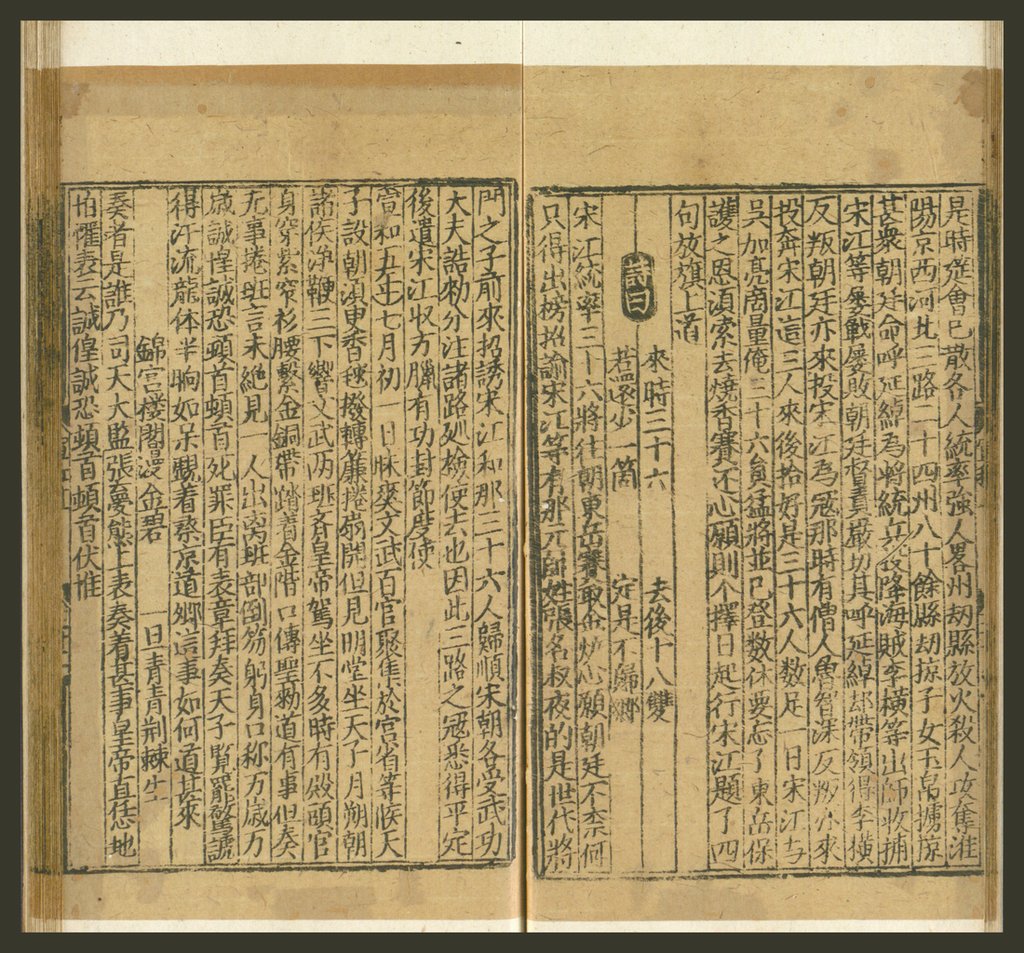 是時筵會已散各人統率強人畧州劫縣放火殺人攻奪淮
陽京西河北三路二十四州八十餘縣劫掠子女玉帛擄掠
甚衆朝廷命呼延綽爲將統兵投降海賊李橫等出師收捕
宋江等屡戰屡敗朝廷督責嚴切其呼延綽却帶領得李橫
反叛朝廷亦來投宋江爲冦那時有僧人魯智深反叛亦來
投奔宋江這三人來後恰好是三十六人数足一日宋江与
吳加亮商量俺三十六員猛將並已登数休要忘了東岳保
護之恩湏索去燒香賽还心願則个擇日起行宋江題了四
句放旗上道
詩曰
來時三十六 去後十八雙
若還少一箇 定是不歸鄉
宋江統率三十六將往朝東岳賽取金炉心願朝廷不柰何
只得出榜招諭宋江等有那元帥姓張名叔夜的是世代將
門之子前來招誘宋江和那三十六人歸順宋朝各受武功
大夫誥勑分注諸路廵檢使去也因此三路之冦悉得平定
後遣宋江收方臘有功封節度使
宣和五年七月初一日昧爽文武百官聚集於宮省等候天
子設朝湏臾香毬撥轉簾捲扇開但見明堂坐天子月朔朝
諸侯净鞭三下響文武两班齐皇帝駕坐不多時有殿頭官
身穿紫窄衫腰繫金銅帶踏着金階口傳聖勑道有事但奏
无事捲班言未絶見一人出离班部倒笏躬身口称万歲万
歲誠惶誠恐頓首頓首死罪臣有表章拜奏天子覧罷驚諕
得汗流龍体半晌如呆覷着蔡京道卿這事如何道甚來
錦宮樓閣漫金碧 一旦青青荆棘生
奏者是誰乃司天大監張夢熊上表奏着甚事皇帝直恁地
怕懼表云誠惶誠恐頓首頓首伏惟